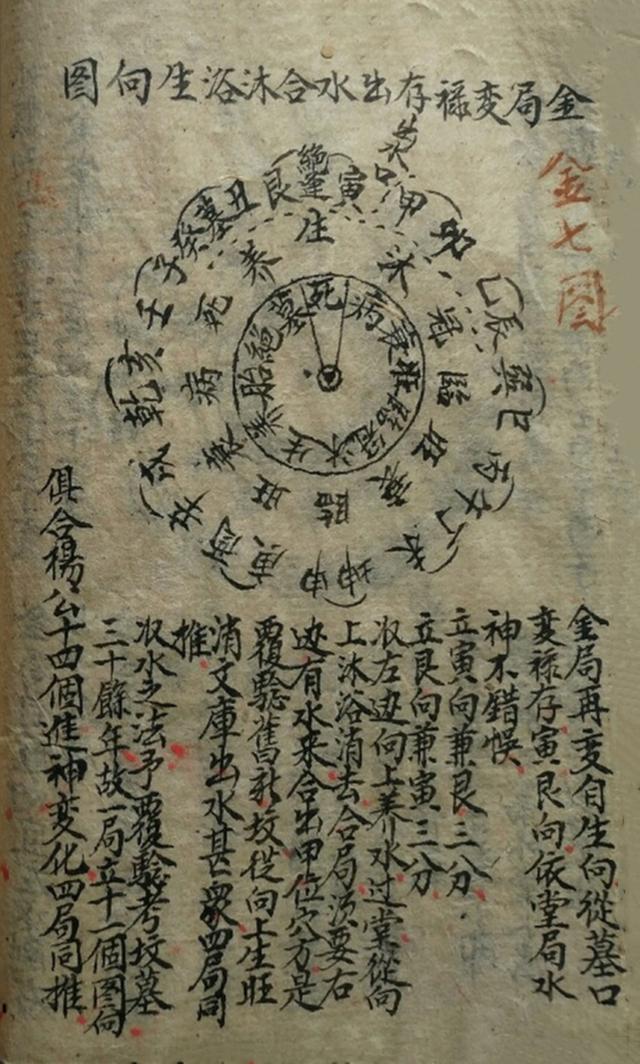 金局変禄存出水合沐浴生向图
金七图
出水口
寅甲卯乙辰巽巳丙午丁未坤申庚酉辛戌乾亥壬子癸丑艮
絕
墓
生沐冠臨旺衰
臨旺衰病死養
死病衰旺臨冠沐生養胎絕墓
金局再变自生向從墓口
变禄存寅艮向依堂局水
神不錯悞
立寅向兼艮三分
立艮向兼寅三分
収左边向上养水过堂從向
上沐浴消去合局须要右
边有水来合出甲位穴方是
覆驗舊新坟從向上生旺
消文庫出水甚衆四局同
推
収水之法予覆驗考坟墓
三十餘年故一局立十一個图向
俱合楊公十四個進神变化四局同推